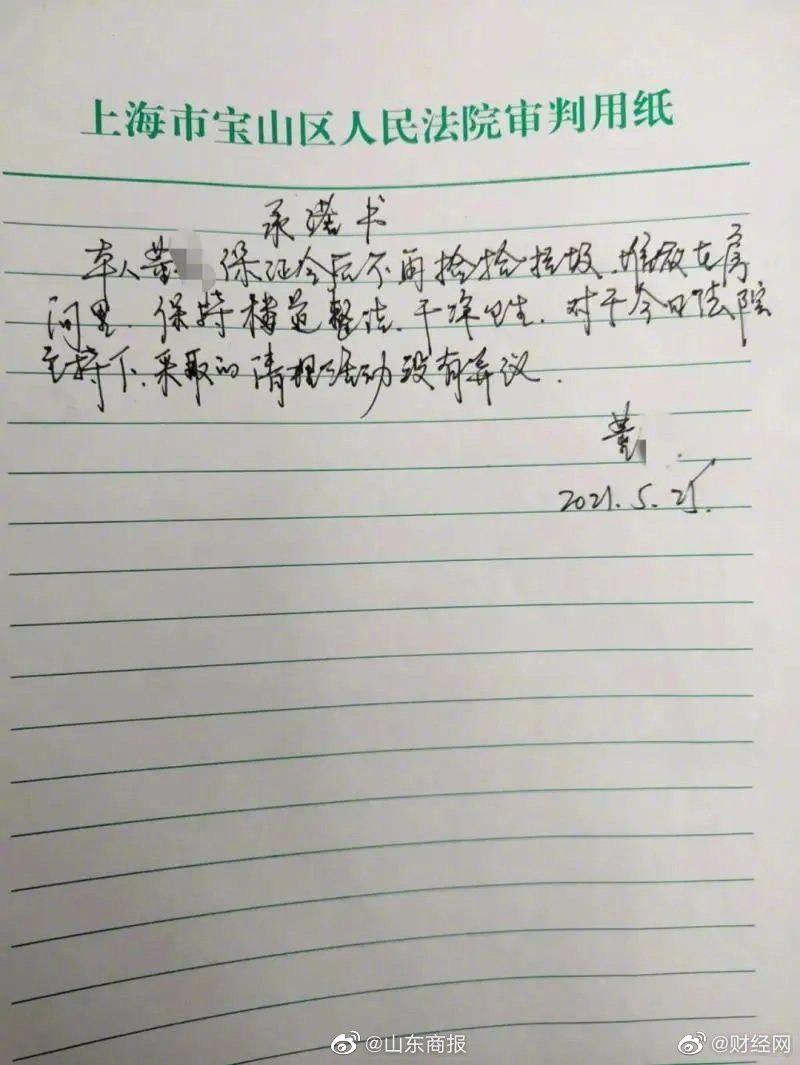 上海市宝山区人民法院审判用纸
承诺书
本人黄 保证今后不再捡拾垃圾、堆放在房
间里、保持楼道整洁、干净卫生、对于今日法院
主持下、采取的清理活动没有异议.
黄
2021.5.25.
@山东商报
@财经网